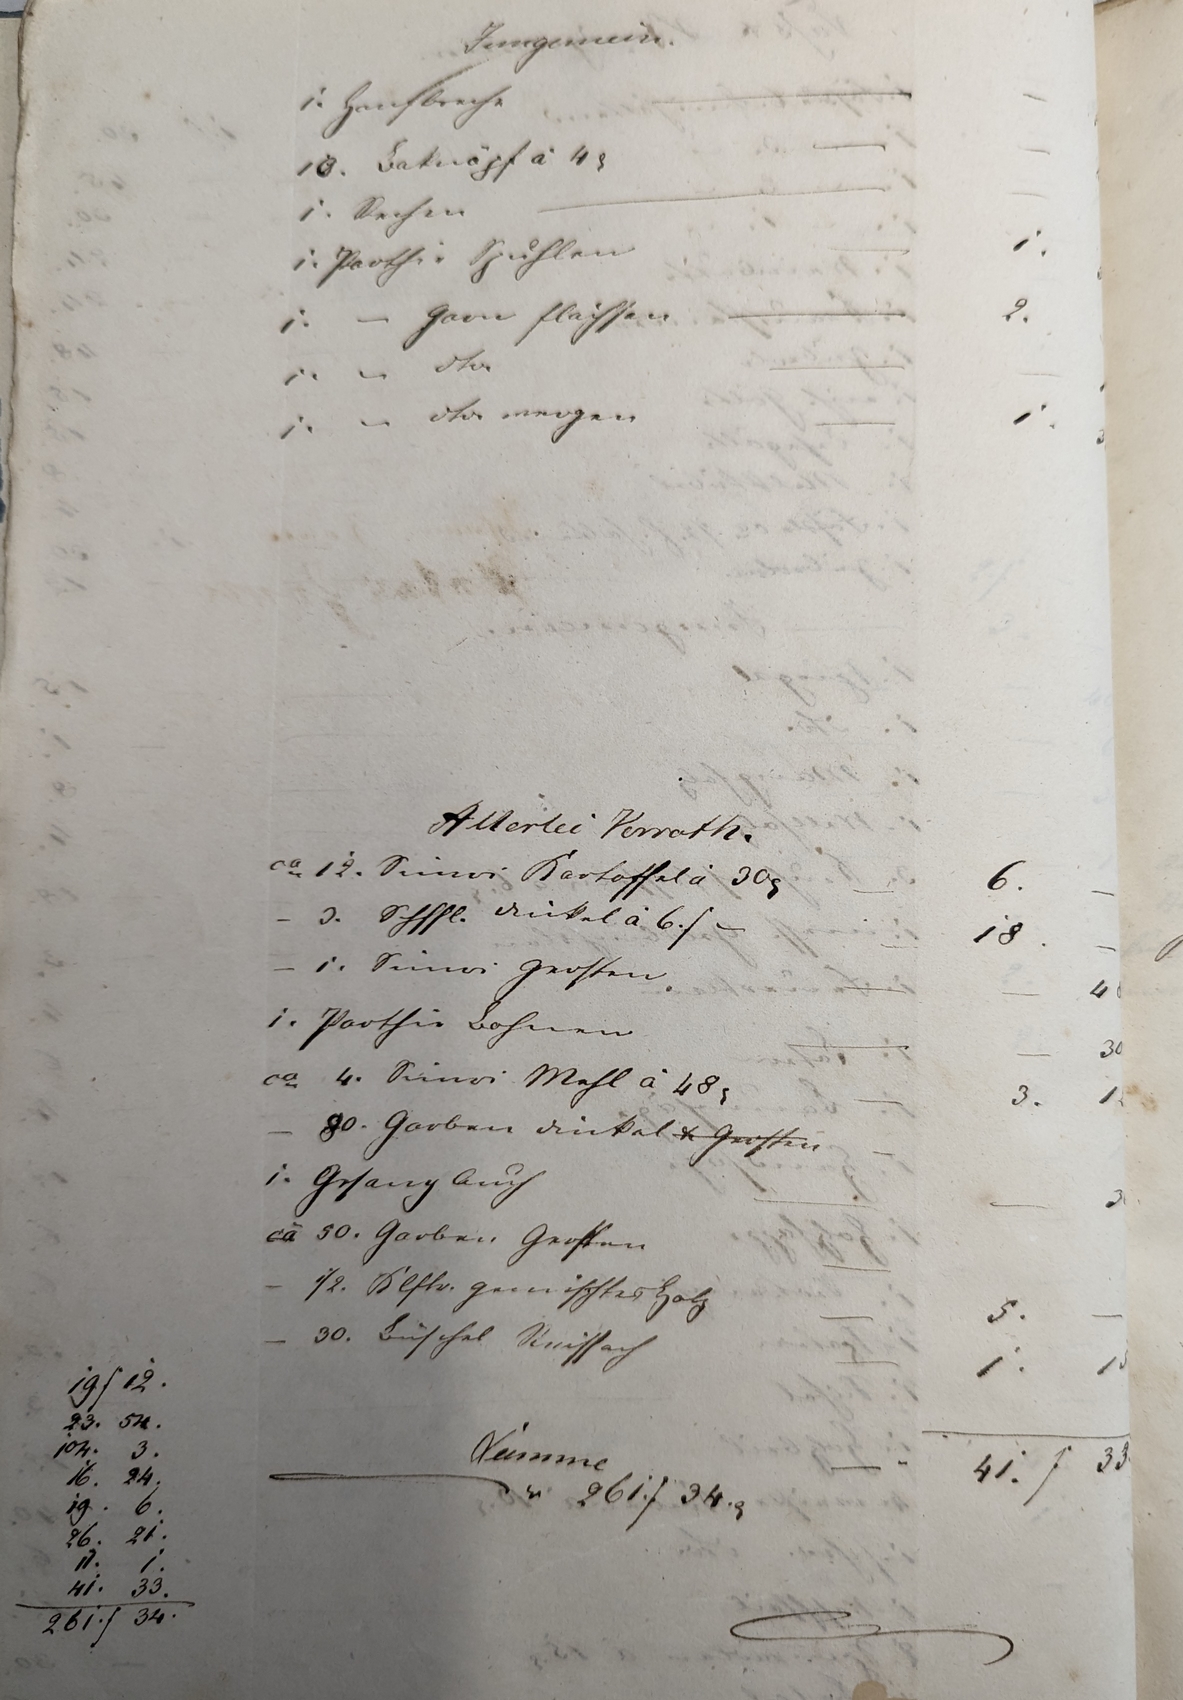 Jnngemein.
1. Hanfbreche — —
18. Baknäpf à 4 x — —
1. Rechen — —
1. Parthie Spuhlen — 1.
1. — Garn flächsen — 2.
1. " dto — —
1. " dto wergen — 1.
Allerlei Vorrath.
ca 12. Simri Kartoffel à 30 x — 6. —
— 3. Schffl. Dinkel à 6. f — — 18. —
— 1. Simri Gersten. — — 48
1. Parthie Bohnen — — 30
ca 4. Simri Mehl à 48 x — 3. 12
— 80. Garben Dinkel & Gersten —
1. Gesangbuch — —
ca 50. Garben Gersten —
— 1/2. Klftr. gemischtes Holz — 5. —
— 30. Büschel Reissach — 1. 15
Summe — 41. f 33
" 261. f 34. x
19 f 12.
23. 54.
104. 3.
16. 24.
19. 6.
26. 21.
11. 1.
41. 33.
261. f 34.